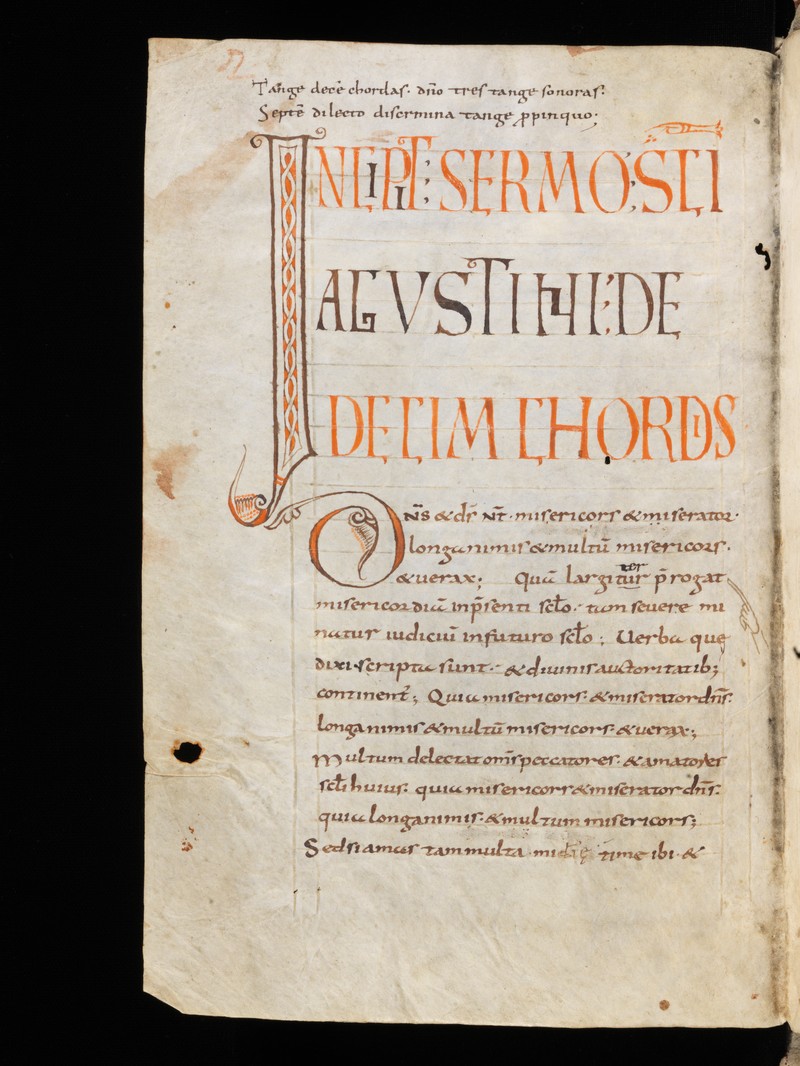 Tange decē chordas· dn̄o tres tange sonoras:
Septē dilecto discrimina tange ꝓpinquo;
INCIPIT; SERMO; SC̄I
AGVSTINI: DE
DECIM CHORDIS
Dn̄s & ds̄ nr̄· misericors & miserator·
longanimis & multū misericors·
& uerax; Quā largitur p̄rogat
misericordiā inp̄senti sclō· tam seuere mi
natur iudiciū infuturo sclō; Uerba quę
dixi scripta sunt· & diuinis auctoritatib;
continent̄; Quia misericors· & miserator dn̄s·
longanimis & multū misericors· & uerax;
Multum delectat om̄s peccatores· & amatores
scl̄i huius· quia misericors & miserator dn̄s·
quia longanimis· & multum misericors;
Sed si amas tam multa time ibi· &